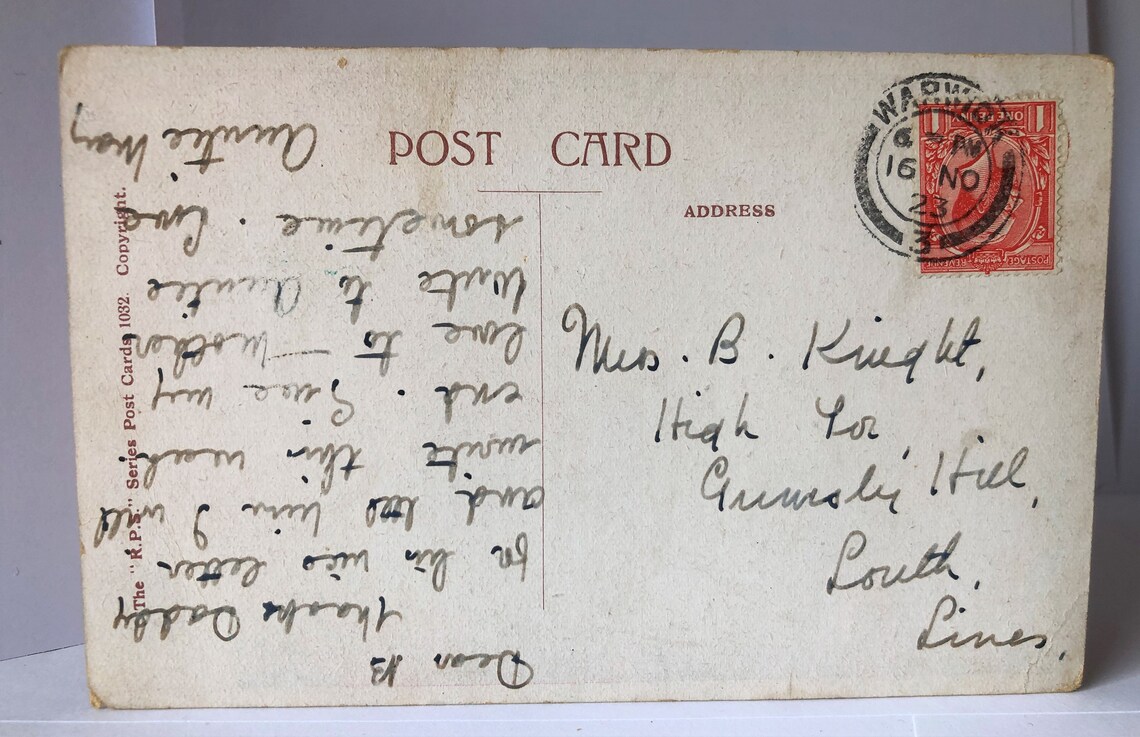 POST CARD
ADDRESS
The "R.P.S." Series Post Cards 1032. Copyright.
WARWICK
PM
16 NO
23
3
1 ONE PENNY 1
POSTAGE REVENUE
Miss. B. Knight,
High Tor,
Grimsby Hill,
Louth,
Lincs,
Dear B
Thank Daddy
for his nice letter
and tell him I will
write this week
end. Give my
love to Mother
Write to Auntie
sometime. Love
Auntie May